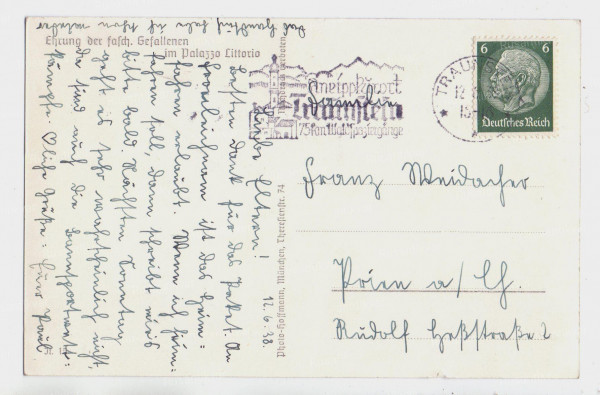 Ehrung der fasch. Gefallenen
im Palazzo Littorio
Liebe Eltern!
Besten Dank für das Paket. An
Fronleichnam ist das Heim=
fahren erlaubt. Wenn ich heim=
fahren soll, dann schreibt mir's
bitte bald. Nächsten Sonntag
geht es sehr wahrscheinlich nicht,
da sind auch die Bannsportwett=
kämpfe. Herzliche Grüße: Euer Paul
Das Handtuch habe ich schon wieder
12.6.38.
Photo-Hoffmann, München, Theresienstr. 74
Kneippkurort
Traunstein
75 km Waldspaziergänge
TRAUN
6 6
Deutsches Reich
Familie
Franz Weidacher
Prien a/Ch.
Rudolf Heßstraße 2